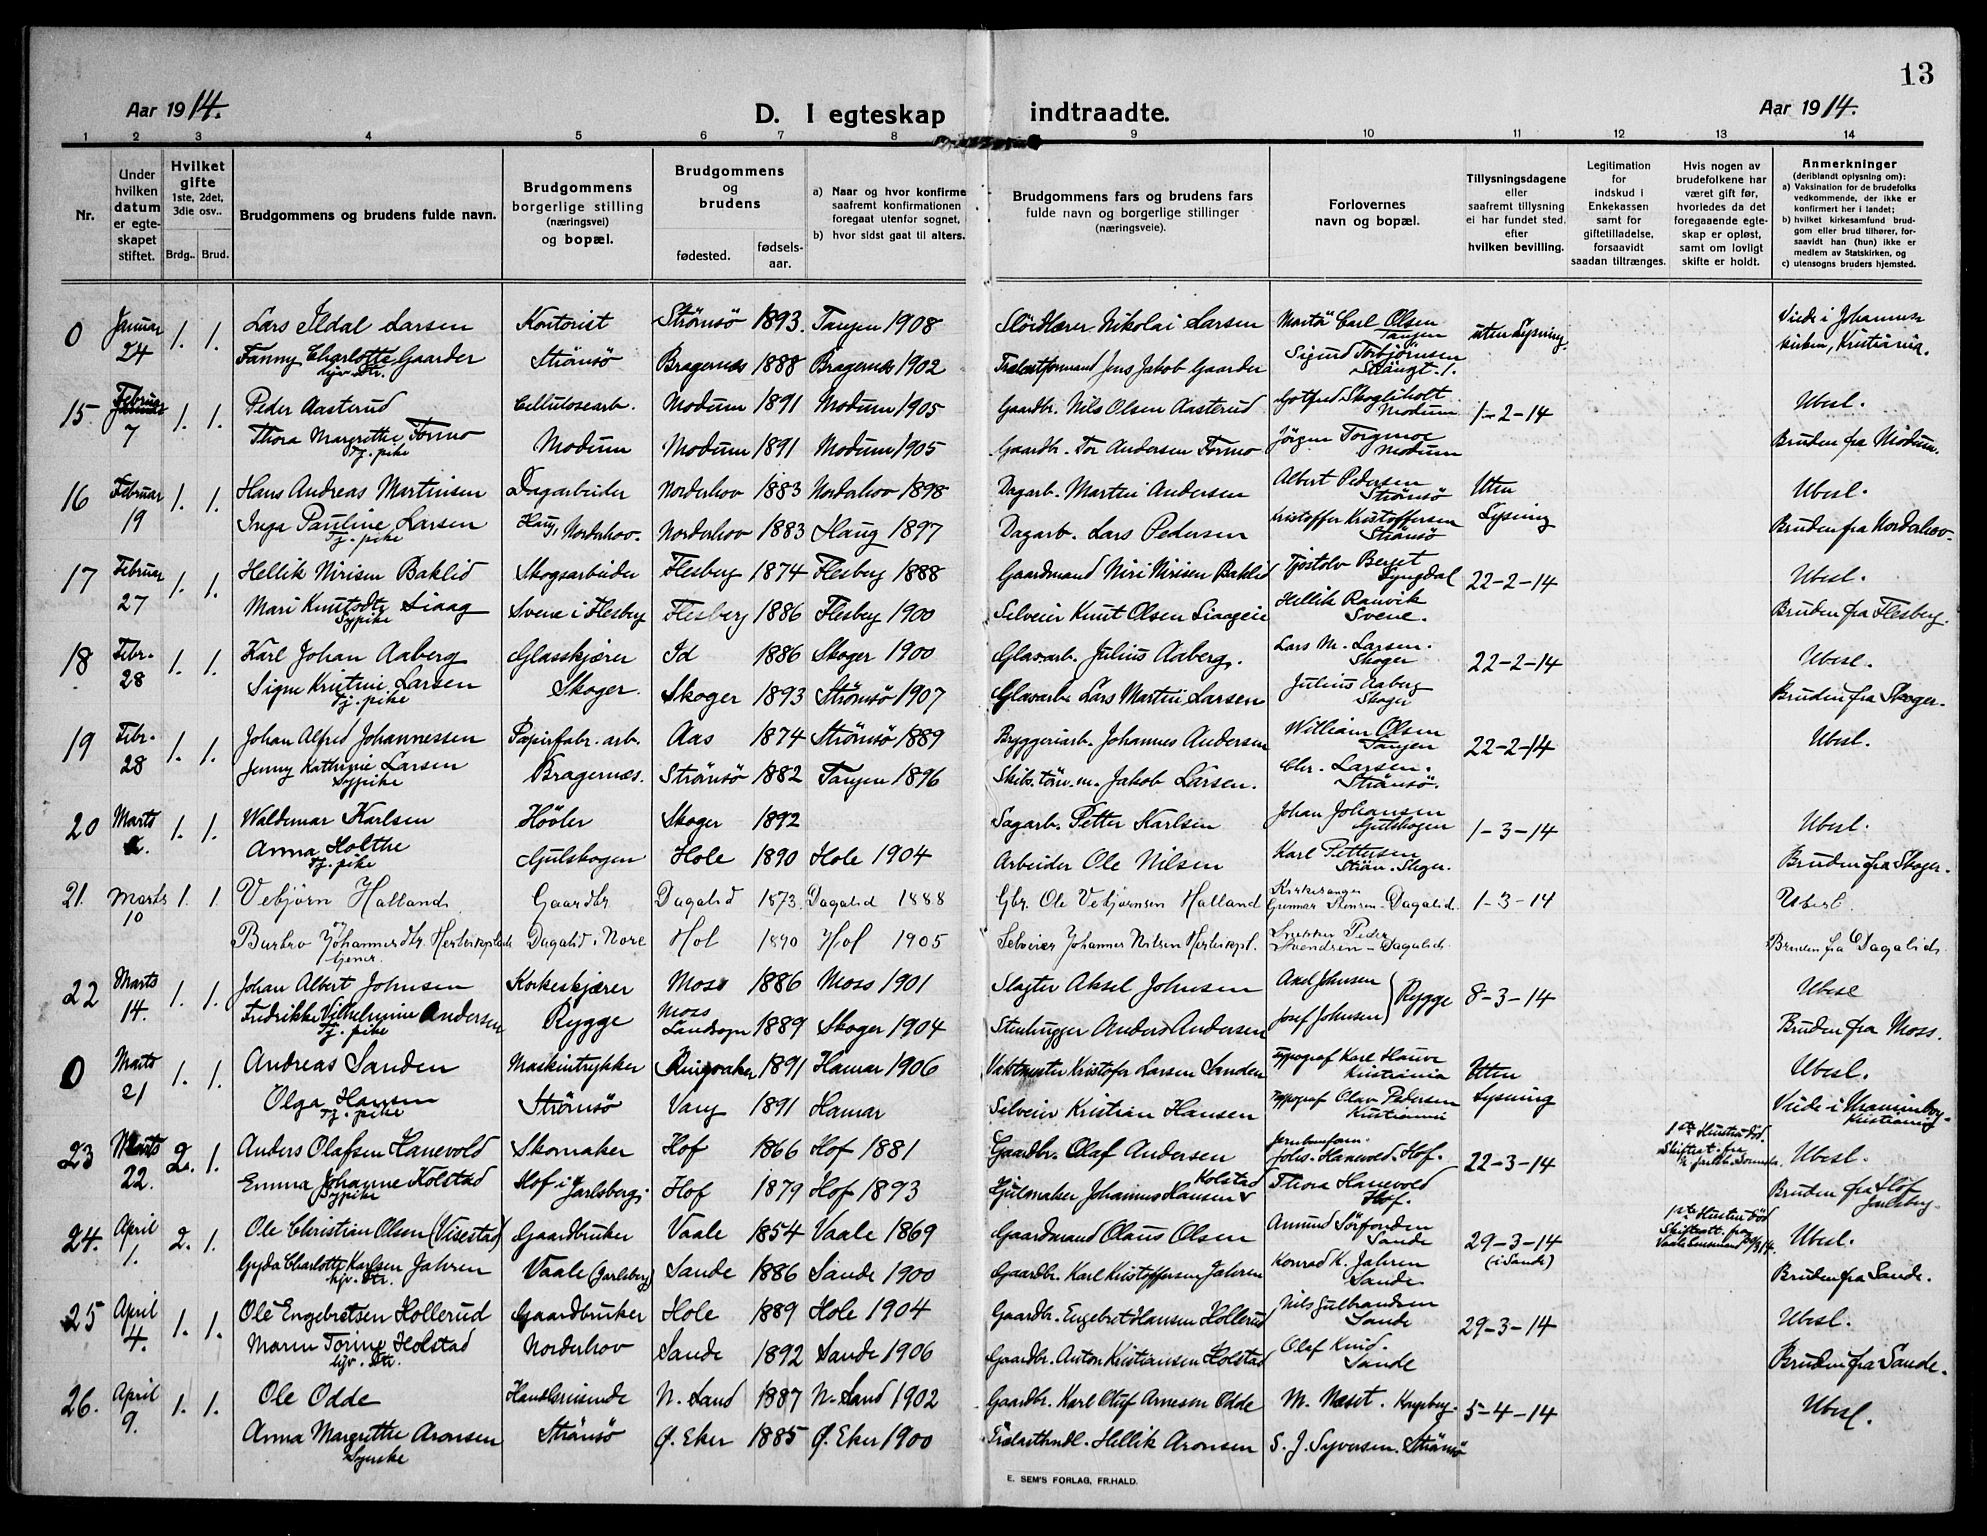 13
Aar 1914.
D. I egteskap indtraadte.
Aar 1914.
1 2 3 4 5 6 7 8 9 10 11 12 13 14
Nr.
Under hvilken datum er egte-skapet stiftet.
Hvilket gifte 1ste, 2det, 3die osv..
Brdg.. Brud.
Brudgommens og brudens fulde navn.
Brudgommens borgerlige stilling (næringsvei) og bopæl.
Brudgommens og brudens
fødested. fødsels-aar.
a) Naar og hvor konfirme saafremt konfirmationen foregaat utenfor sognet,
b) hvor sidst gaat til alters.
Brudgommens fars og brudens fars fulde navn og borgerlige stillinger (næringsveie).
Forlovernes navn og bopæl.
Tillysningsdagene eller saafremt tillysning ei har fundet sted. efter hvilken bevilling.
Legitimation for indskud i Enkekassen samt for giftetilladelse, forsaavidt saadan tiltrænges.
Hvis nogen av brudefolkene har været gift før, hvorledes da det foregaaende egte-skap er opløst, samt om lovligt skifte er holdt.
Anmerkninger (deriblandt oplysning om):
a) Vaksination for de brudefolks vedkommende, der ikke er konfirmert her i landet;
b) hvilket kirkesamfund brud-gom eller brud tilhører, for-saavidt han (hun) ikke er medlem av Statskirken, og
c) utensogns bruders hjemsted.
0 Januar 24 1. 1. Lars Ildal Larsen Kontorist Strømsø 1893. Tangen 1908 Sløidlærer Nikolai Larsen Carl Olsen Tangen uten Lysning. Viede i Johannes kirken, Kristiania.
Fanny Charlotte Gaarder hjv. Dtr. Strømsø Bragernes 1888 Bragernes 1902 Jens Jakob Gaarder Sigurd Torbjørnsen
15 Februar 7 1. 1. Peder Aasterud Cellulosearb. Modum 1891 Modum 1905 Gaardbr. Nils Olsen Aasterud Gotfred Skogliholt Modum 1-2-14 Ubesl.
Thora Margrethe Formo Tj. pike Modum Modum 1891 Modum 1905 Gaardbr. Tor Andersen Formo Jørgen Torgmoe Modum Bruden fra Modum.
16 Februar 19 1. 1. Hans Andreas Martinsen Dagarbeider Norderhov 1883 Norderhov 1898 Dagarb. Martin Andersen Albert Pedersen Strømsø Uten Lysning Ubesl.
Inga Pauline Larsen Tj. pike Haug, Norderhov. Norderhov 1883 Haug 1897 Dagarb. Lars Pedersen Kristoffer Kristoffersen Strømsø Bruden fra Norderhov.
17 Februar 27 1. 1. Hellik Nirisen Baklid Skogsarbeider Flesberg 1874 Flesberg 1888 Gaardmand Niri Nirisen Baklid Tjøstolv Berget Lyngdal 22-2-14 Ubesl.
Mari Knutsdtr Siaag Sypike Svene i Flesberg Flesberg 1886 Flesberg 1900 Selveier Knut Olsen Hellik Ranvik Svene. Bruden fra Flesberg.
18 Febr. 28 1. 1. Karl Johan Aaberg Glasskjærer Id 1886 Skoger 1900 Glasarb. Julius Aaberg. Lars M. Larsen. Skoger 22-2-14 Ubesl.
Signe Kristine Larsen Tj. pike Skoger. Skoger 1893 Strømsø 1907 Glasarb. Lars Martin Larsen Julius Aaberg Skoger Bruden fra Skoger.
19 Febr. 28 1. 1. Johan Alfred Johannessen Papirfabr. arb. Aas 1874 Strømsø 1889 Bryggeriarb. Johannes Andersen William Olsen Tangen 22-2-14 Ubesl.
Jenny Kathrine Larsen Sypike Bragernæs. Strømsø 1882 Tangen 1896 Skibs.tøm.m. Jakob Larsen. Chr. Larsen. Strømsø.
20 Marts 1. 1. Waldemar Karlsen Høvler Skoger 1892 Sagarb. Petter Karlsen Johan Johansen Gulskogen 1-3-14 Ubesl.
Anna Holthe Tj. pike Gulskogen Hole 1890 Hole 1904 Arbeider Ole Nilsen Karl Pettersen Strøm. Skoger. Bruden fra Skoger.
21. Marts 10 1. 1. Vebjørn Halland Gaardbr. Dagalid 1873. Dagalid 1888 Gbr. Ole Vebjørnsen Halland Kirkesanger Gunnar Stensen - Dagalid. 1-3-14 Ubesl.
Barbro Johannesdtr. tjener Dagalid i Nore Hol 1890 Hol 1905 Selveier Johannes Nilsen Snekker Peder Svendsen - Dagalid. Bruden fra Dagalid
22 Marts 14. 1. 1. Johan Albert Johnsen Korkeskjærer Moss 1886 Moss 1901 Slagter Aksel Johnsen Axel Johnsen Rygge 8-3-14 Ubesl
Fredrikke Vilhelmine Andersen Tj. pike Rygge Moss Landsogn 1889 Skoger 1904 Stenhugger Anders Andersen Josef Johnsen Bruden fra Moss.
0 Marts 21 1. 1. Andreas Sanden Maskintrykker Ringsaker 1891 Hamar 1906 Vaktmester Kristofer Larsen Sanden Typograf Karl Hauve Kristiania Uten Lysning Ubesl.
Olga Hansen Tj. pike Strømsø Vang 1891 Hamar Selveier Kristian Hansen Typograf Olav Pedersen Kristiania Viede i Uranienborg Kristiania
23 Marts 22. 2. 1. Anders Olafsen Hanevold Skomaker Hof 1866 Hof 1881 Gaardbr. Olaf Andersen Johs. Hanevold. Hof. 22-3-14 1ste Hustru död. Skifteat. fra Ubesl.
Emma Johanne Kolstad Sypike Hof i Jarlsberg Hof 1879 Hof 1893 Hjulmaker Johannes Hansen Kolstad Thora Hanevold Hof. Bruden fra Hof Jarlsberg.
24. April 1. 2. 1. Ole Christian Olsen (Visestad) Gaardbruker Vaale 1854 Vaale 1869 Gaardmand Olaus Olsen Amund Sørfonden Sande 29-3-14 (i Sande) 1ste Hustru död Skifteatt. fra Vaale Lensmand Ubesl.
Gyda Charlotte Karlsen Jahren hjv. Dtr. Vaale (Jarlsberg) Sande 1886 Sande 1900 Gaardbr. Karl Kristoffersen Jahren Konrad K. Jahren Sande Bruden fra Sande.
25 April 4. 1. 1. Ole Engebretsen Hollerud Gaardbruker Hole 1889 Hole 1904 Gaardbr. Engebret Hansen Hollerud Nils Gulbrandsen Sande 29-3-14 Ubesl.
Maren Torine Holstad hjv. Dtr. Norderhov Sande 1892 Sande 1906 Gaardbr. Anton Kristiansen Holstad Olaf Kind. Sande Bruden fra Sande.
26. April 9. 1. 1. Ole Odde Handelsreisende N. Land 1887 N. Land 1902 Gaardbr. Karl Oluf Arneson Odde M. Næset. Kngsberg. 5-4-14 Ubesl.
Anna Margrethe Aronsen Syerske Strømsø Ø. Eker 1885 Ø. Eker 1900 Trælasthndl. Hellik Aronsen S. J. Syversen. Strømsø
E. SEM'S FORLAG, FR.HALD.